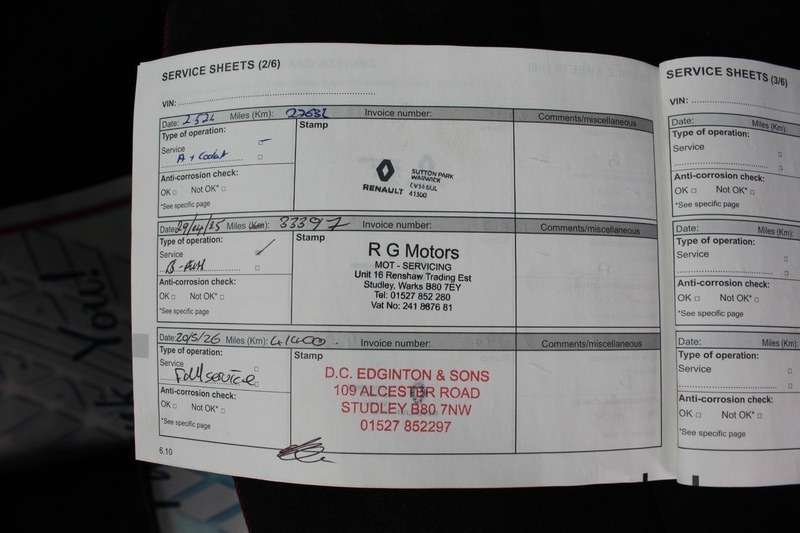 SERVICE SHEETS (2/6)
VIN:
Date: 2524 Miles (Km): 27631 Invoice number: Comments/miscellaneous
Type of operation:
Service
A + Coolant
Anti-corrosion check:
OK Not OK*
*See specific page
Stamp
RENAULT
SUTTON PARK
WARWICK
41500
Date: 29/04/25 Miles (Km): 33397 Invoice number: Comments/miscellaneous
Type of operation:
Service
Anti-corrosion check:
OK Not OK*
*See specific page
Stamp
R G Motors
MOT - SERVICING
Unit 16 Renshaw Trading Est
Studley, Warks B80 7EY
Tel: 01527 852 280
Vat No: 241 8676 81
Date: 20/5/26 Miles (Km): 41400 Invoice number: Comments/miscellaneous
Type of operation:
Service
Full service
Anti-corrosion check:
OK Not OK*
*See specific page
Stamp
D.C. EDGINTON & SONS
109 ALCESTER ROAD
STUDLEY B80 7NW
01527 852297
6.10
SERVICE SHEETS (3/6)
VIN:
Date: Miles (Km):
Type of operation:
Service
Anti-corrosion check:
OK Not OK*
*See specific page
Date: Miles (Km):
Type of operation:
Service
Anti-corrosion check:
OK Not OK*
*See specific page
Date: Miles (Km):
Type of operation:
Service
Anti-corrosion check:
OK Not OK*
*See specific page
You!